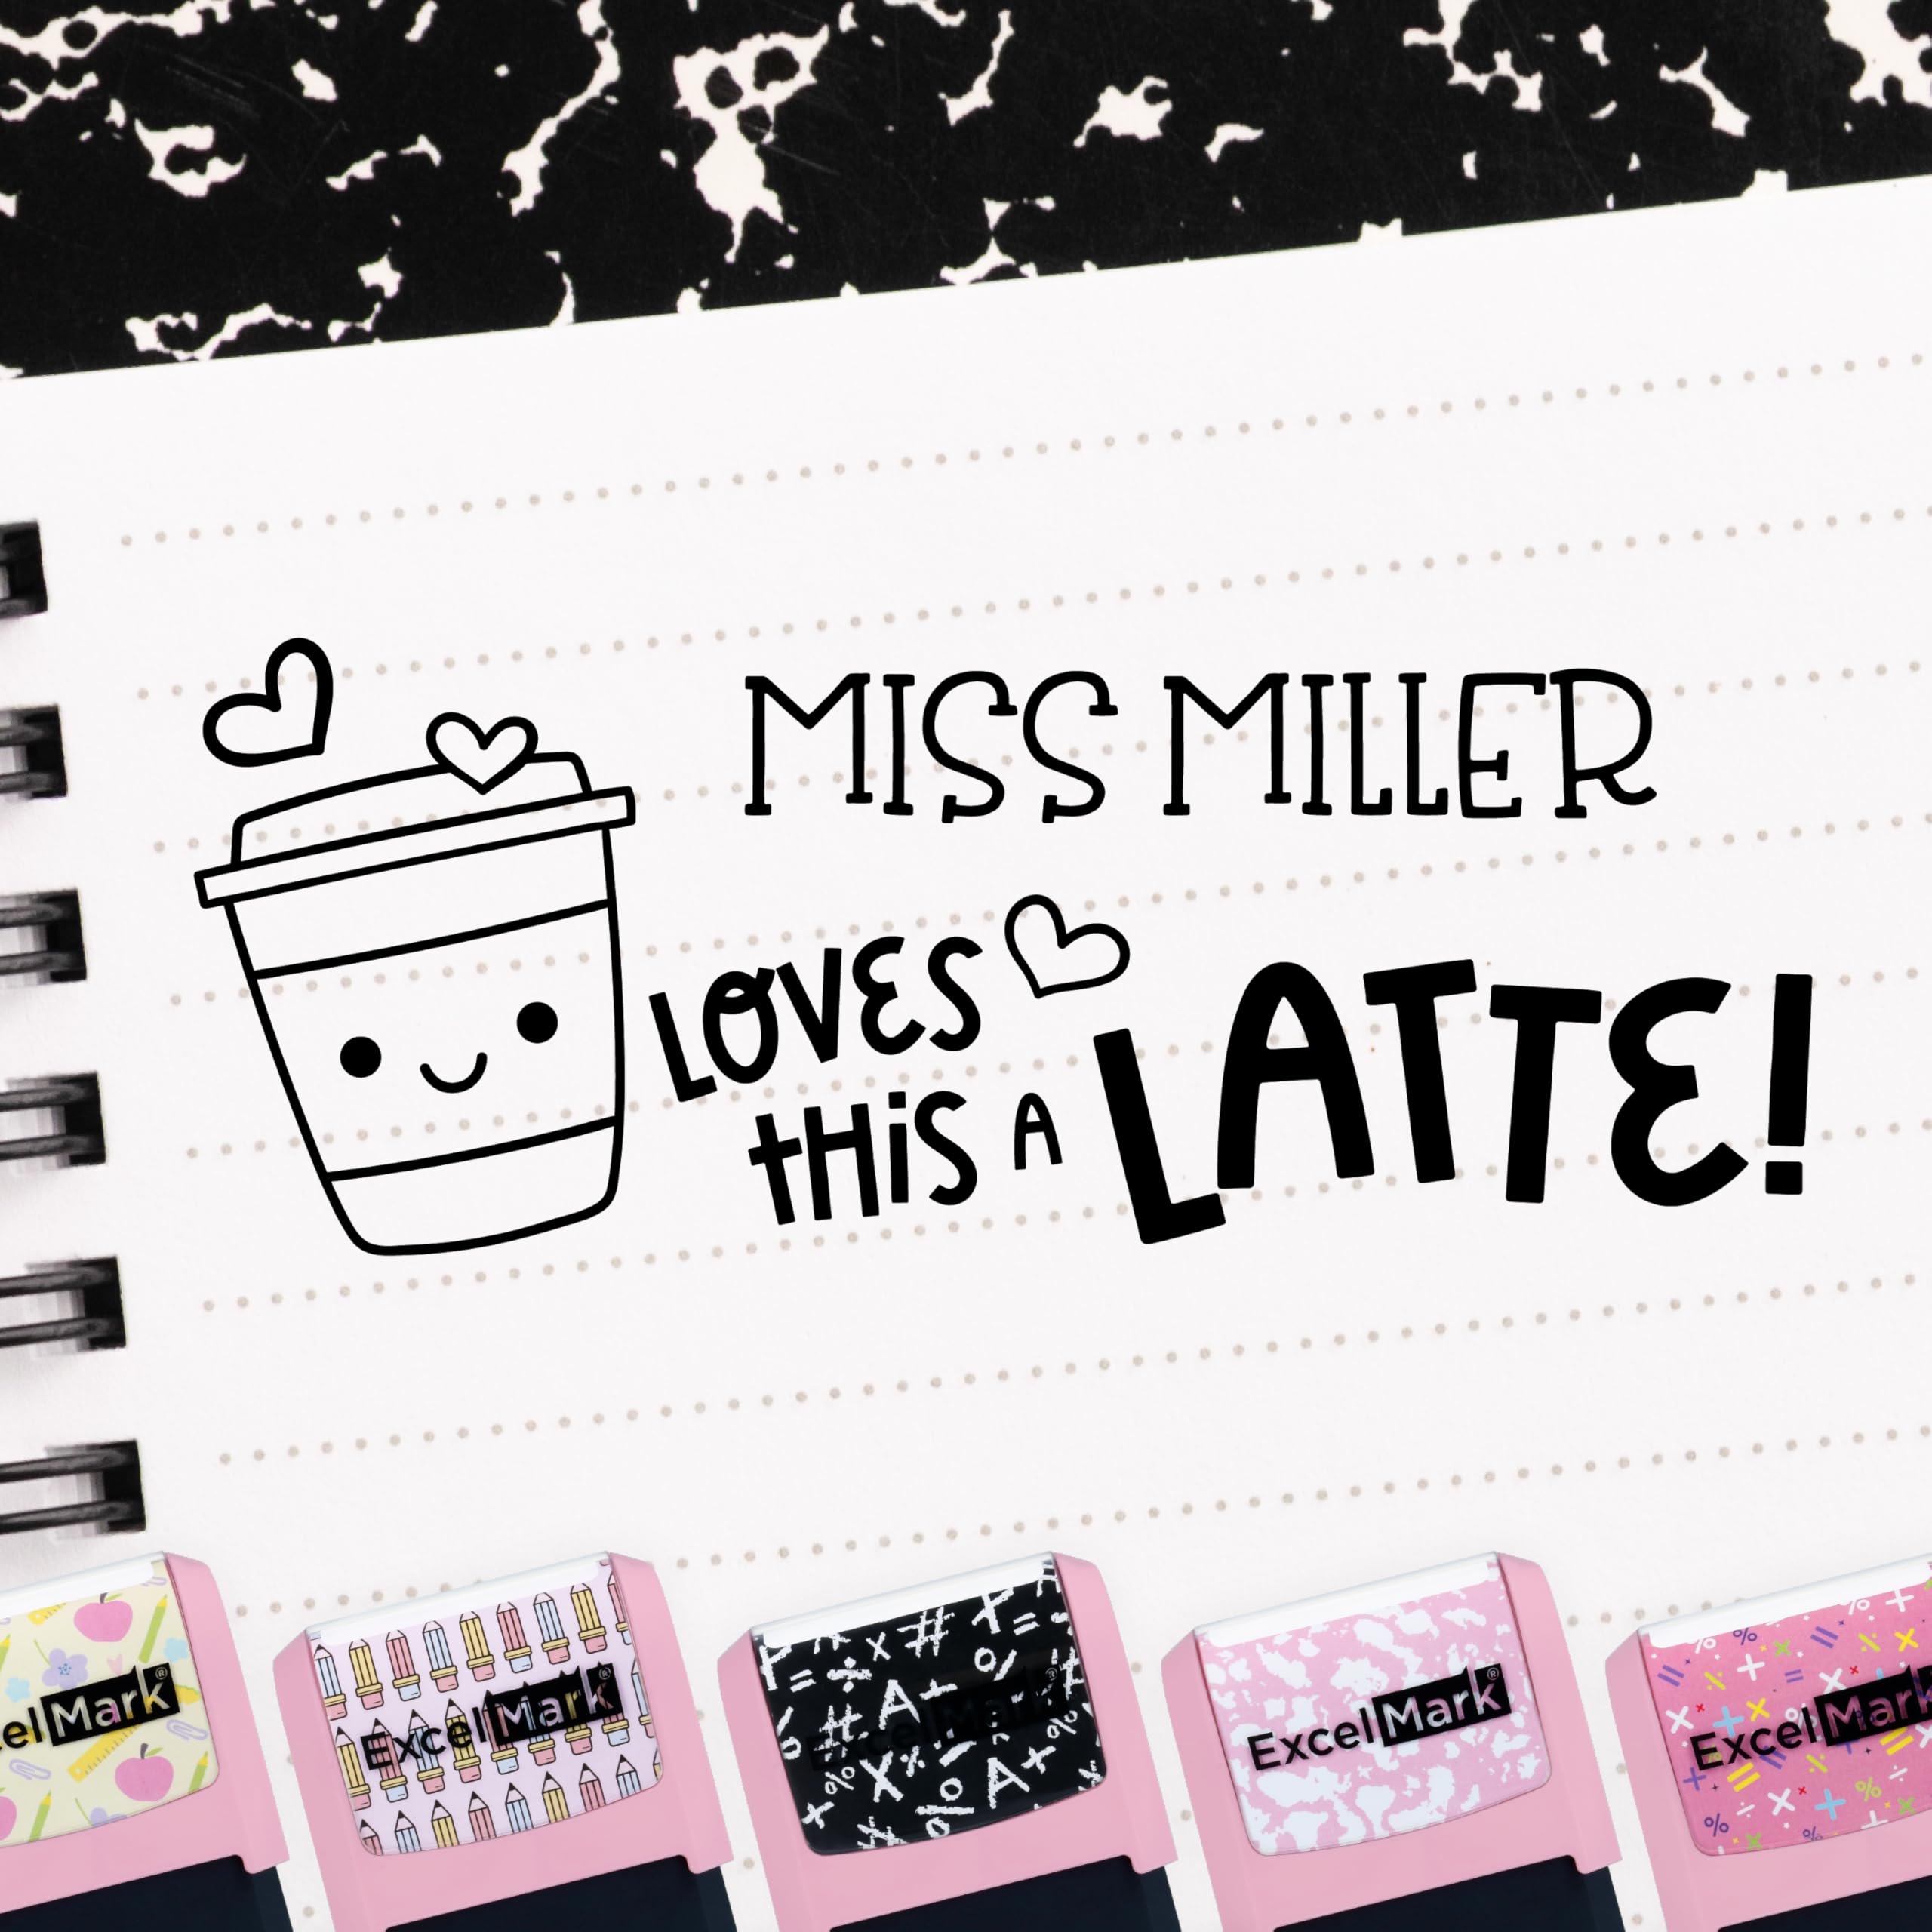 MISS MILLER
LOVES
tHiS A LATTE!
celMark®
ExcelMark®
ExcelMark®
ExcelMark®
ExcelMark